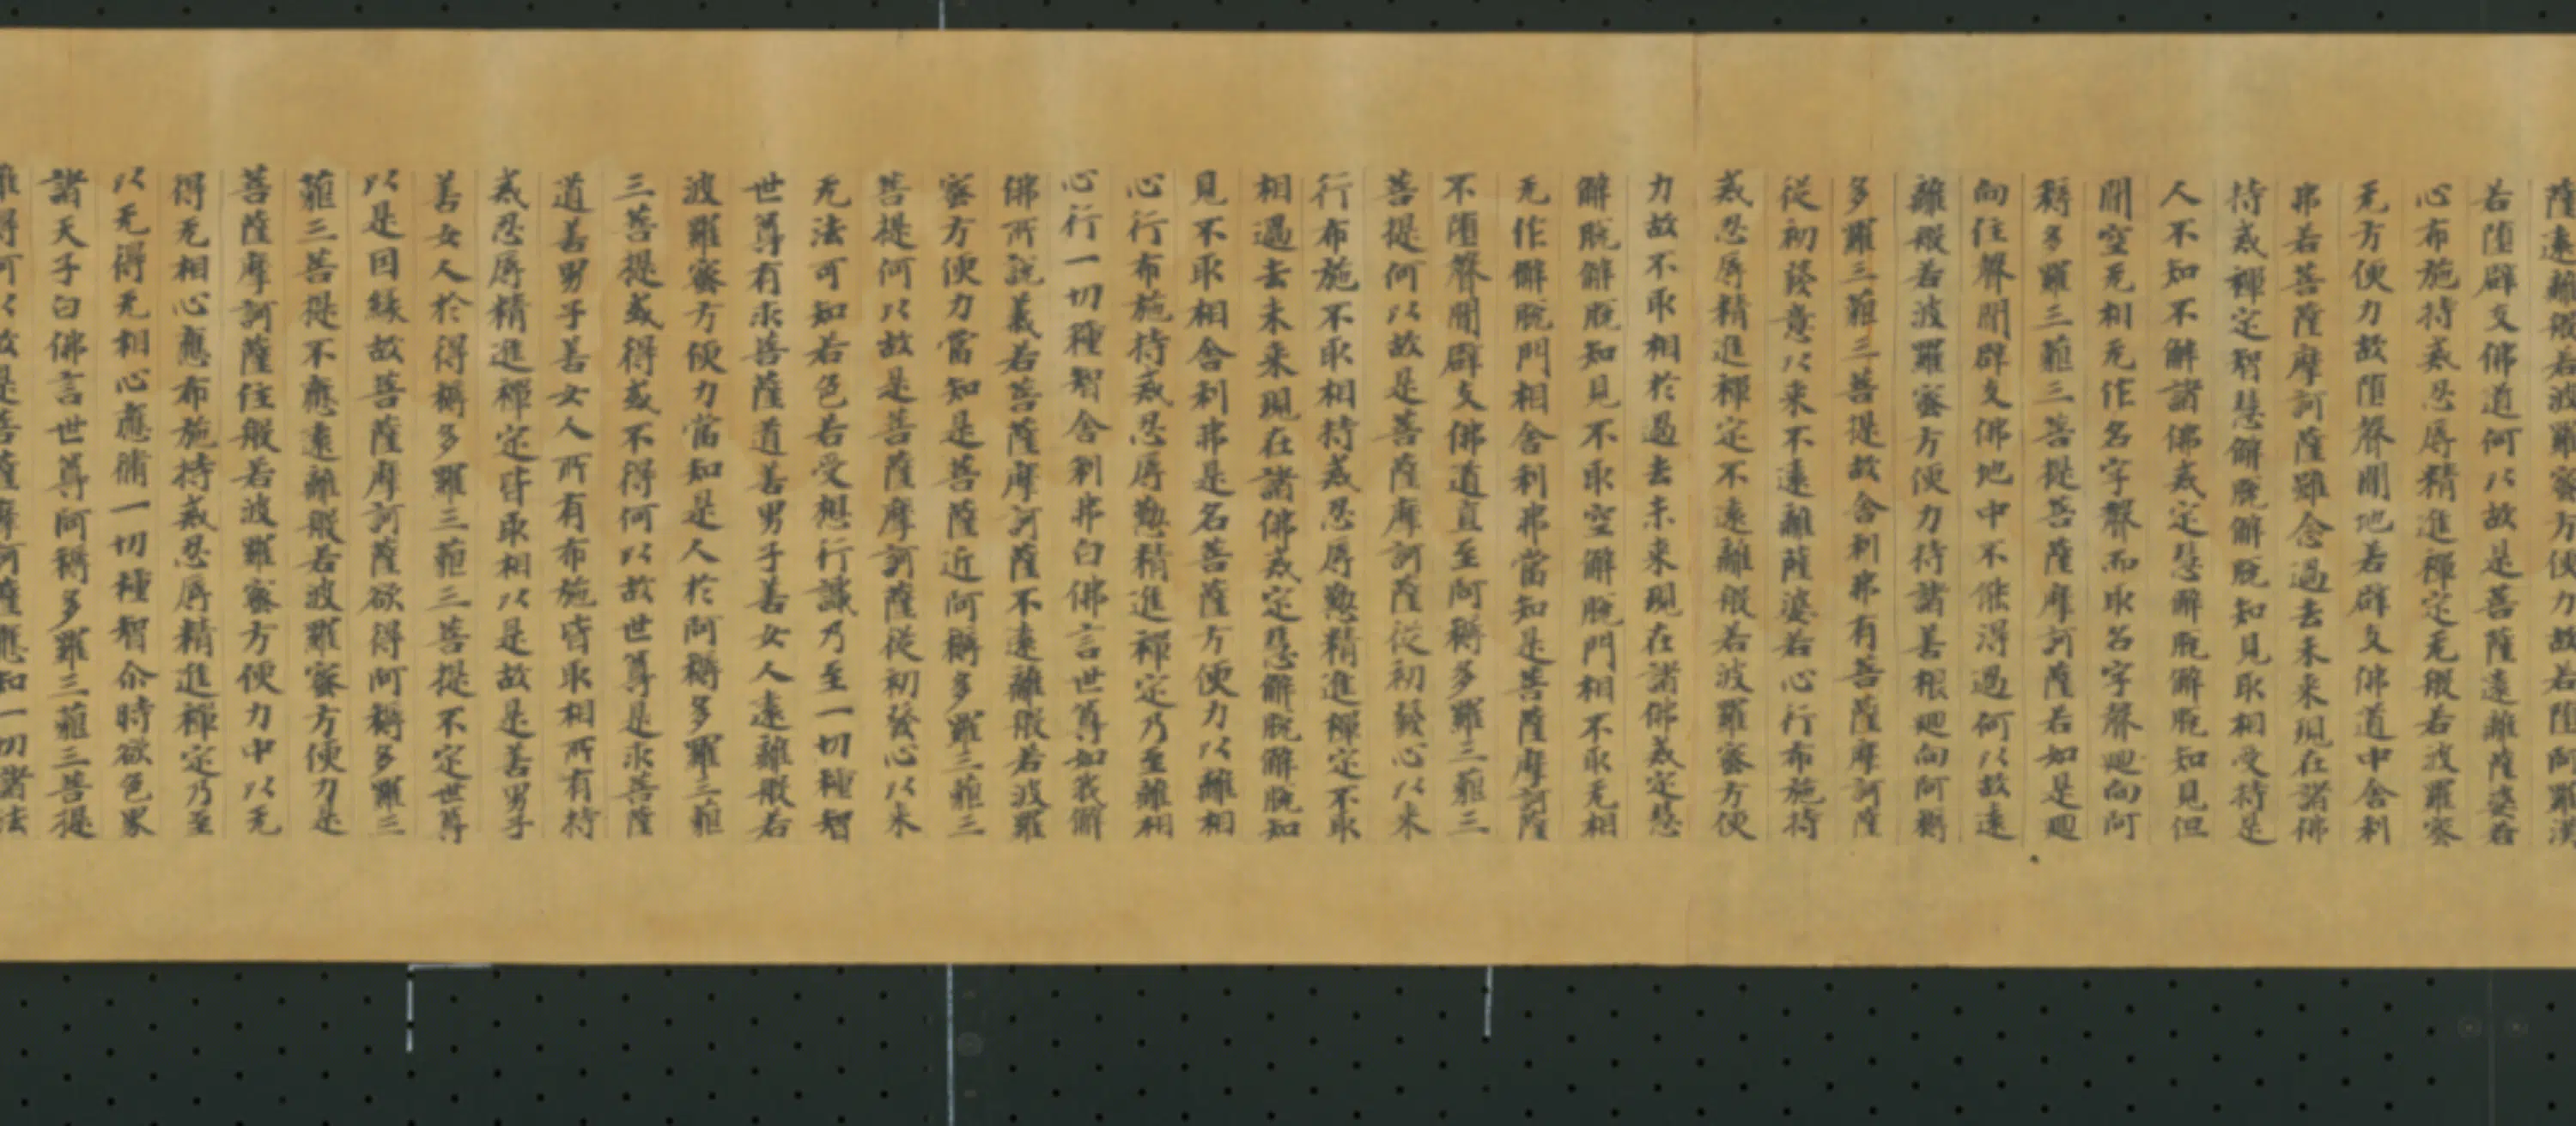 薩遠離般若波羅蜜方便力故若墮阿羅漢
若墮辟支佛道何以故是菩薩遠離薩婆若
心布施持戒忍辱精進禪定无般若波羅蜜
无方便力故墮聲聞地若辟支佛道中舍利
弗若菩薩摩訶薩雖念過去未來現在諸佛
持戒禪定智慧解脫解脫知見取相受持是
人不知不解諸佛戒定慧解脫解脫知見但
聞空无相无作名字聲而取名字聲迴向阿
耨多羅三藐三菩提菩薩摩訶薩若如是迴
向住聲聞辟支佛地中不能得過何以故遠
離般若波羅蜜方便力持諸善根迴向阿耨
多羅三藐三菩提故舍利弗有菩薩摩訶薩
從初發意以來不遠離薩婆若心行布施持
戒忍辱精進禪定不遠離般若波羅蜜方便
力故不取相於過去未來現在諸佛戒定慧
解脫解脫知見不取空解脫門相不取无相
无作解脫門相舍利弗當知是菩薩摩訶薩
不墮聲聞辟支佛道直至阿耨多羅三藐三
菩提何以故是菩薩摩訶薩從初發心以來
行布施不取相持戒忍辱懃精進禪定不取
相過去未來現在諸佛戒定慧解脫解脫知
見不取相舍利弗是名菩薩方便力以離相
心行布施持戒忍辱懃精進禪定乃至離相
心行一切種智舍利弗白佛言世尊如我解
佛所說義若菩薩摩訶薩不遠離般若波羅
蜜方便力當知是菩薩近阿耨多羅三藐三
菩提何以故是菩薩摩訶薩從初發心以來
无法可知若色若受想行識乃至一切種智
世尊有求菩薩道善男子善女人遠離般若
波羅蜜方便力當知是人於阿耨多羅三藐
三菩提或得或不得何以故世尊是求菩薩
道善男子善女人所有布施皆取相所有持
戒忍辱精進禪定皆取相以是故是善男子
善女人於得耨多羅三藐三菩提不定世尊
以是因緣故菩薩摩訶薩欲得阿耨多羅三
藐三菩提不應遠離般若波羅蜜方便力是
菩薩摩訶薩住般若波羅蜜方便力中以无
得无相心應布施持戒忍辱精進禪定乃至
以无得无相心應脩一切種智尒時欲色界
諸天子白佛言世尊阿耨多羅三藐三菩提
難得何以故是菩薩摩訶薩應知一切諸法